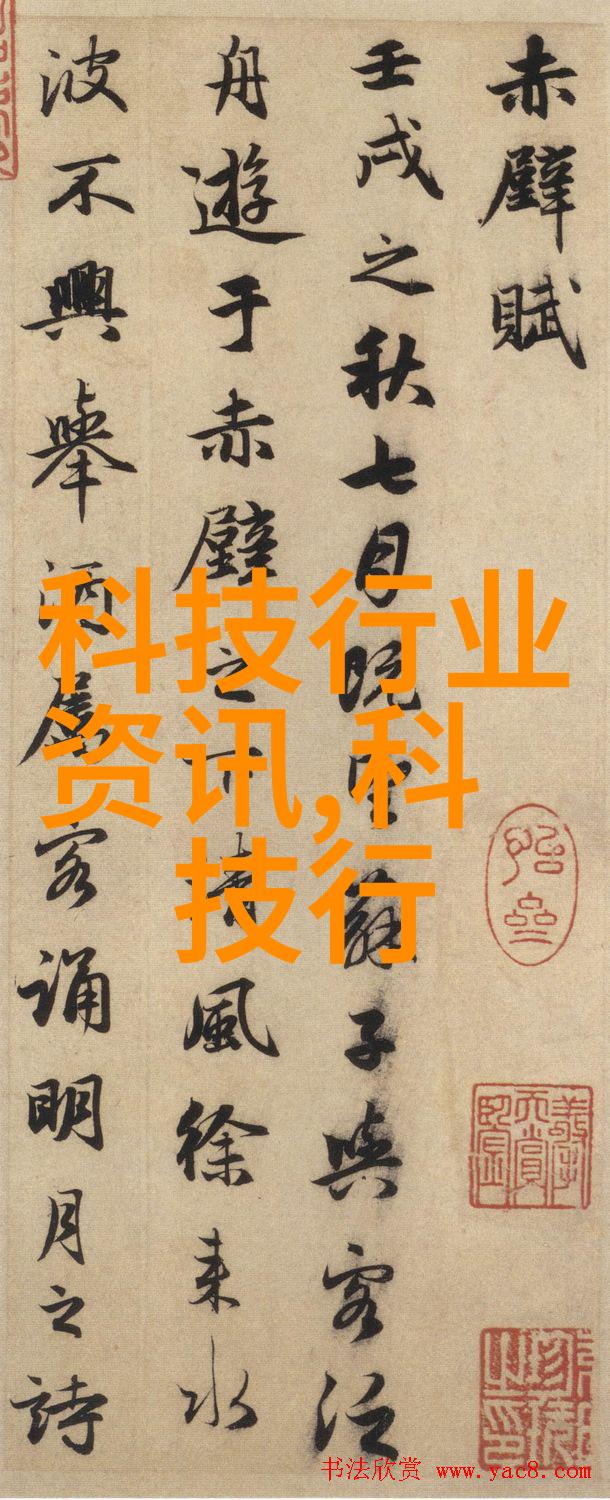 赤壁賦
壬戌之秋七月既望蘇子與客泛
舟遊于赤壁之下清風徐来水
波不興舉酒屬客誦明月之詩
科技行业
资讯,科
技行
书法欣赏 www.yac8.com